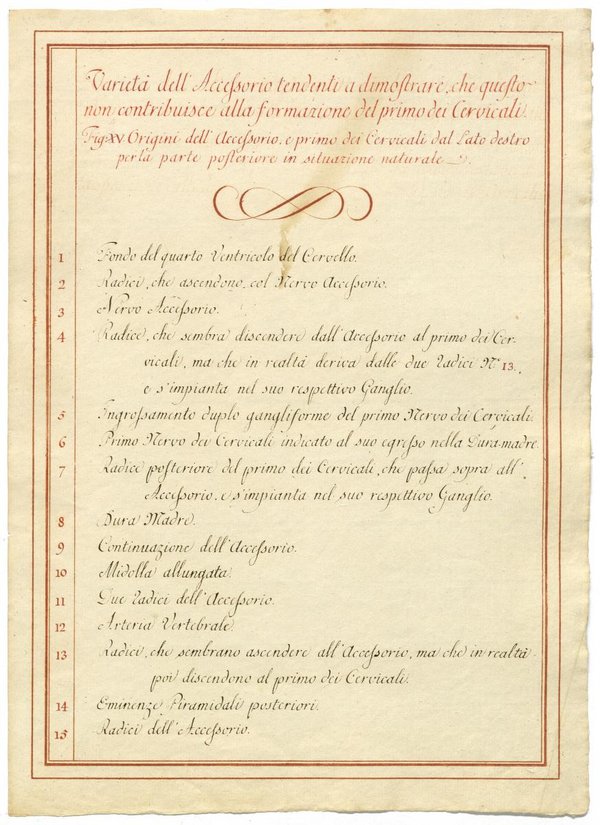 Varietà dell'Accessorio tendenti a dimostrare, che questo
non contribuisce alla formazione del primo dei Cervicali.
Fig. XV. Origini dell'Accessorio, e primo dei Cervicali dal Lato destro
per la parte posteriore in situazione naturale.
1 Fondo del quarto Ventricolo del Cervello.
2 Radici, che ascendono, col Nervo Accessorio.
3 Nervo Accessorio.
4 Radice, che sembra discendere dall'Accessorio al primo dei Cer-
vicali, ma che in realtà deriva dalle due radici N.º 13.
e s'impianta nel suo respettivo Ganglio.
5 Ingrossamento duplo gangliforme del primo Nervo dei Cervicali.
6 Primo Nervo dei Cervicali indicato al suo egresso nella Dura-madre.
7 Radice posteriore del primo dei Cervicali, che passa sopra all'
Accessorio, e s'impianta nel suo respettivo Ganglio.
8 Dura Madre.
9 Continuazione dell'Accessorio.
10 Midolla allungata.
11 Due radici dell'Accessorio.
12 Arteria Vertebrale.
13 Radici, che sembrano ascendere all'Accessorio, ma che in realtà
poi discendono al primo dei Cervicali.
14 Eminenze Piramidali posteriori.
15 Radici dell'Accessorio.